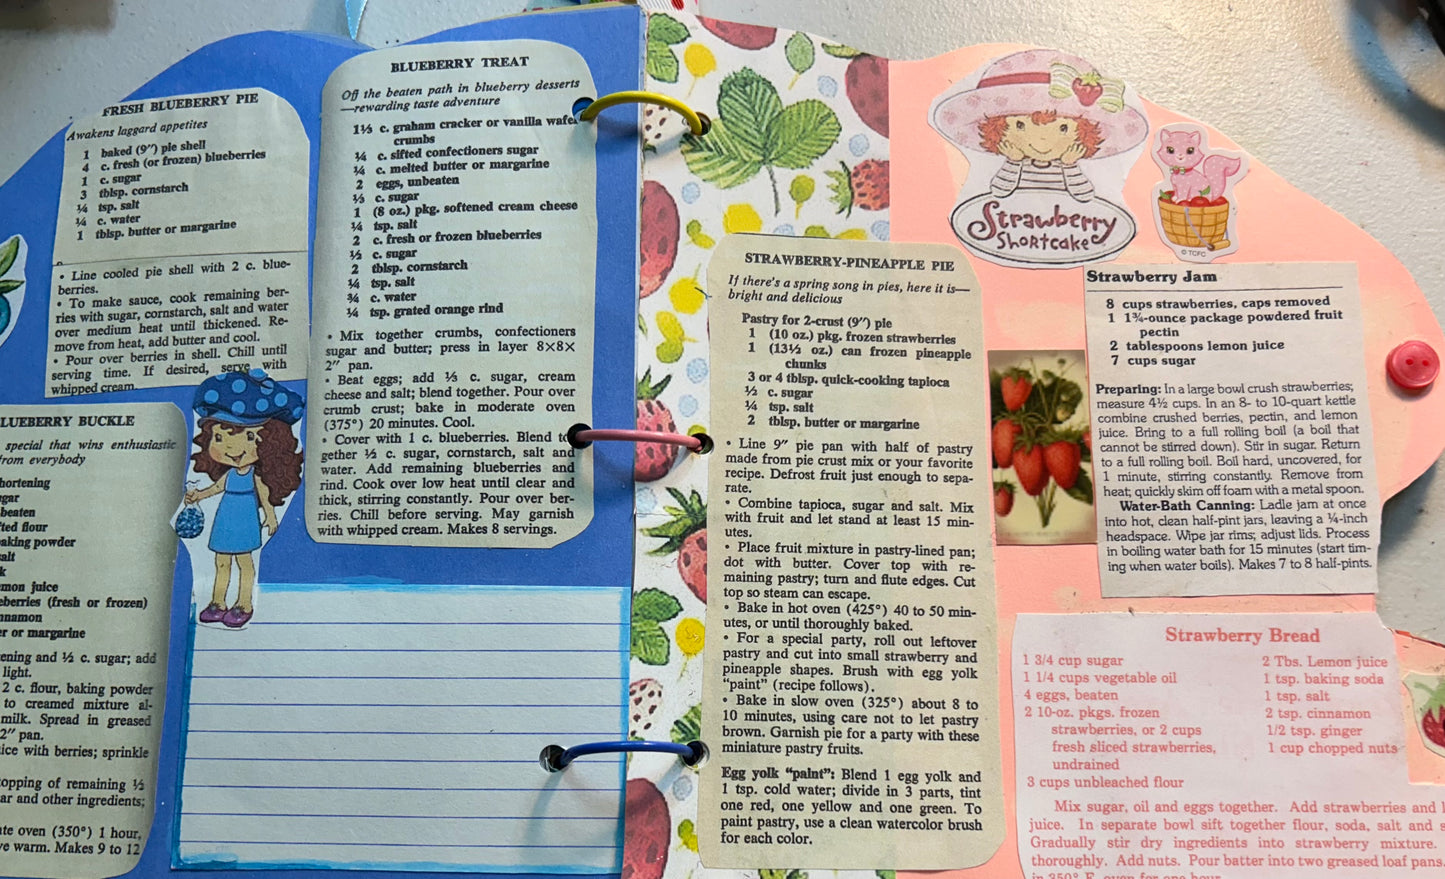 FRESH BLUEBERRY PIE
Awakens laggard appetites
1 baked (9″) pie shell
4 c. fresh (or frozen) blueberries
1 c. sugar
3 tblsp. cornstarch
¼ tsp. salt
¼ c. water
1 tblsp. butter or margarine
• Line cooled pie shell with 2 c. blue-
berries.
• To make sauce, cook remaining ber-
ries with sugar, cornstarch, salt and water
over medium heat until thickened. Re-
move from heat, add butter and cool.
• Pour over berries in shell. Chill until
serving time. If desired, serve with
whipped cream.
LUEBERRY BUCKLE
special that wins enthusiastic
from everybody
hortening
gar
beaten
fted flour
aking powder
salt
k
mon juice
eberries (fresh or frozen)
nnamon
er or margarine
ening and ½ c. sugar; add
light.
2 c. flour, baking powder
to creamed mixture al-
milk. Spread in greased
2″ pan.
ice with berries; sprinkle
opping of remaining ½
ar and other ingredients;
ate oven (350°) 1 hour,
ve warm. Makes 9 to 12
BLUEBERRY TREAT
Off the beaten path in blueberry desserts
—rewarding taste adventure
1⅓ c. graham cracker or vanilla wafer
crumbs
¼ c. sifted confectioners sugar
¼ c. melted butter or margarine
2 eggs, unbeaten
⅓ c. sugar
1 (8 oz.) pkg. softened cream cheese
¼ tsp. salt
2 c. fresh or frozen blueberries
½ c. sugar
2 tblsp. cornstarch
¼ tsp. salt
¾ c. water
¼ tsp. grated orange rind
• Mix together crumbs, confectioners
sugar and butter; press in layer 8×8×
2″ pan.
• Beat eggs; add ⅓ c. sugar, cream
cheese and salt; blend together. Pour over
crumb crust; bake in moderate oven
(375°) 20 minutes. Cool.
• Cover with 1 c. blueberries. Blend to
gether ½ c. sugar, cornstarch, salt and
water. Add remaining blueberries and
rind. Cook over low heat until clear and
thick, stirring constantly. Pour over ber-
ries. Chill before serving. May garnish
with whipped cream. Makes 8 servings.
STRAWBERRY-PINEAPPLE PIE
If there's a spring song in pies, here it is—
bright and delicious
Pastry for 2-crust (9″) pie
1 (10 oz.) pkg. frozen strawberries
1 (13½ oz.) can frozen pineapple
chunks
3 or 4 tblsp. quick-cooking tapioca
½ c. sugar
¼ tsp. salt
2 tblsp. butter or margarine
• Line 9″ pie pan with half of pastry
made from pie crust mix or your favorite
recipe. Defrost fruit just enough to sepa-
rate.
• Combine tapioca, sugar and salt. Mix
with fruit and let stand at least 15 min-
utes.
• Place fruit mixture in pastry-lined pan;
dot with butter. Cover top with re-
maining pastry; turn and flute edges. Cut
top so steam can escape.
• Bake in hot oven (425°) 40 to 50 min-
utes, or until thoroughly baked.
• For a special party, roll out leftover
pastry and cut into small strawberry and
pineapple shapes. Brush with egg yolk
“paint” (recipe follows).
• Bake in slow oven (325°) about 8 to
10 minutes, using care not to let pastry
brown. Garnish pie for a party with these
miniature pastry fruits.
Egg yolk “paint”: Blend 1 egg yolk and
1 tsp. cold water; divide in 3 parts, tint
one red, one yellow and one green. To
paint pastry, use a clean watercolor brush
for each color.
Strawberry
Shortcake
© TCFC
Strawberry Jam
8 cups strawberries, caps removed
1 1¾-ounce package powdered fruit
pectin
2 tablespoons lemon juice
7 cups sugar
Preparing: In a large bowl crush strawberries;
measure 4½ cups. In an 8- to 10-quart kettle
combine crushed berries, pectin, and lemon
juice. Bring to a full rolling boil (a boil that
cannot be stirred down). Stir in sugar. Return
to a full rolling boil. Boil hard, uncovered, for
1 minute, stirring constantly. Remove from
heat; quickly skim off foam with a metal spoon.
Water-Bath Canning: Ladle jam at once
into hot, clean half-pint jars, leaving a ¼-inch
headspace. Wipe jar rims; adjust lids. Process
in boiling water bath for 15 minutes (start tim-
ing when water boils). Makes 7 to 8 half-pints.
Strawberry Bread
1 3/4 cup sugar
1 1/4 cups vegetable oil
4 eggs, beaten
2 10-oz. pkgs. frozen
strawberries, or 2 cups
fresh sliced strawberries,
undrained
3 cups unbleached flour
2 Tbs. Lemon juice
1 tsp. baking soda
1 tsp. salt
2 tsp. cinnamon
1/2 tsp. ginger
1 cup chopped nuts
Mix sugar, oil and eggs together. Add strawberries and
juice. In separate bowl sift together flour, soda, salt and s
Gradually stir dry ingredients into strawberry mixture.
thoroughly. Add nuts. Pour batter into two greased loaf pans.
in 350° F. oven for one hour